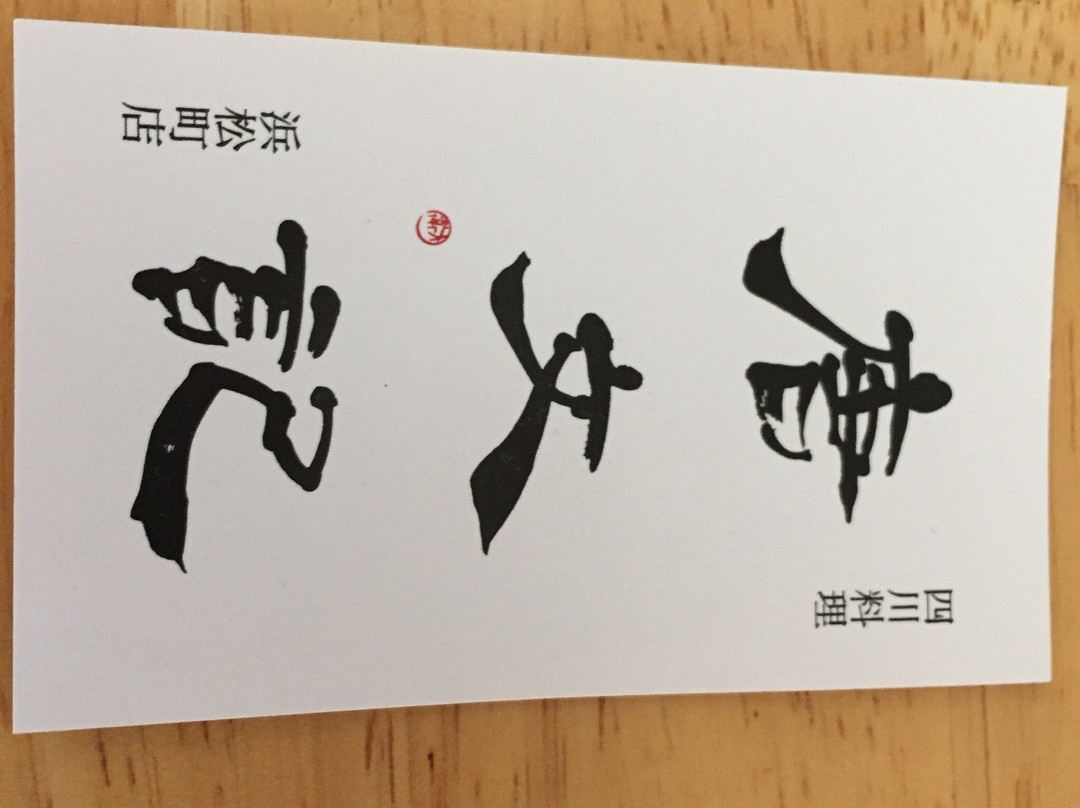 四川料理
唐文記
浜松町店